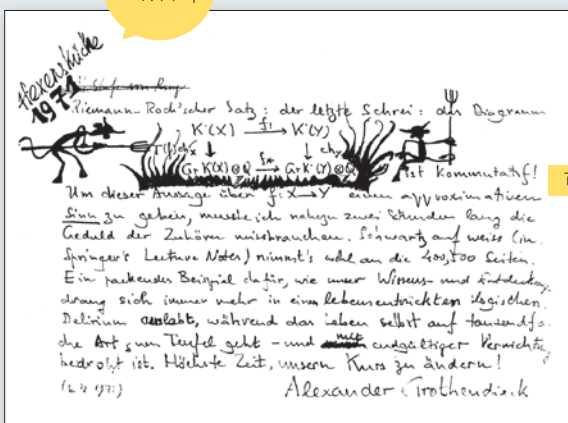 Hexenküche
1971
Riemann-Roch'scher Satz: der letzte Schrei: das Diagramm
K˙(X) f! K˙(Y)
ch_X ch_Y
Gr K˙(X)⊗Q f* Gr K˙(Y)⊗Q
ist kommutatif!
Um dieser Aussage über f: X→Y einen approximativen
Sinn zu geben, musste ich nahezu zwei Stunden lang die
Geduld der Zuhörer missbrauchen. Schwartz auf weiss (in
Springer's Lecture Notes) nimmt's wohl an die 400, 500 Seiten.
Ein packendes Beispiel dafür, wie unser Wissens- und Entdeckungs
drang sich immer mehr in einem lebensentrückten logischen
Delirium auslebt, während das Leben selbst auf tausendfa
che Art zum Teufel geht - und mit endgültiger Vernichtung
bedroht ist. Höchste Zeit, unsern Kurs zu ändern!
Alexander Grothendieck